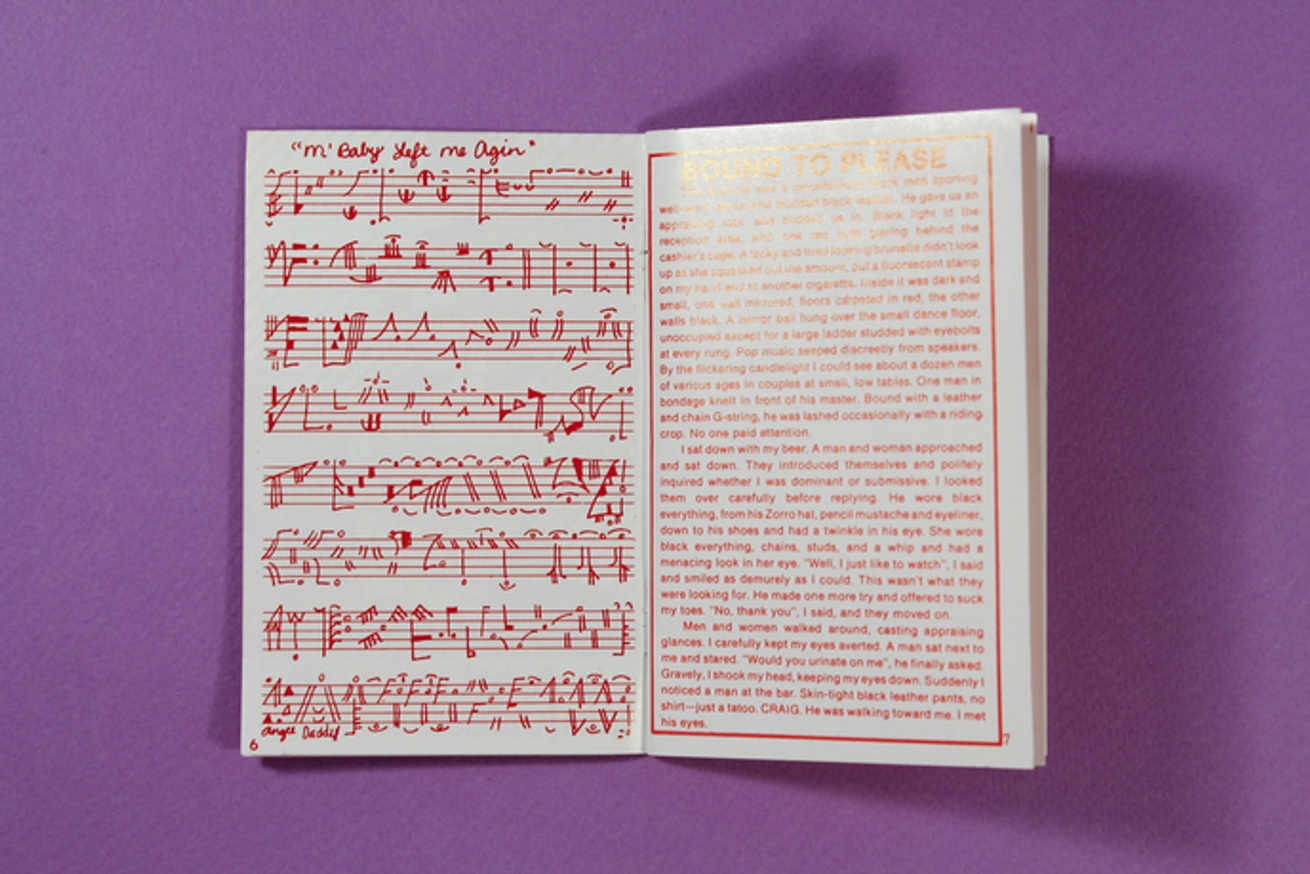 "M' Baby Left me Agin"
angee Daddy
6
BOUND TO PLEASE
men sporting
black leather. He gave us an
appraising look and nodded us in. Black light lit the
reception area, with one red bulb glaring behind the
cashier's cage. A tacky and tired looking brunette didn't look
up as she squeaked out the amount, put a fluorescent stamp
on my hand and lit another cigarette. Inside it was dark and
small, one wall mirrored, floors carpeted in red, the other
walls black. A mirror ball hung over the small dance floor,
unoccupied except for a large ladder studded with eyebolts
at every rung. Pop music seeped discreetly from speakers.
By the flickering candlelight I could see about a dozen men
of various ages in couples at small, low tables. One man in
bondage knelt in front of his master. Bound with a leather
and chain G-string, he was lashed occasionally with a riding
crop. No one paid attention.
I sat down with my beer. A man and woman approached
and sat down. They introduced themselves and politely
inquired whether I was dominant or submissive. I looked
them over carefully before replying. He wore black
everything, from his Zorro hat, pencil mustache and eyeliner,
down to his shoes and had a twinkle in his eye. She wore
black everything, chains, studs, and a whip and had a
menacing look in her eye. "Well, I just like to watch", I said
and smiled as demurely as I could. This wasn't what they
were looking for. He made one more try and offered to suck
my toes. "No, thank you", I said, and they moved on.
Men and women walked around, casting appraising
glances. I carefully kept my eyes averted. A man sat next to
me and stared. "Would you urinate on me", he finally asked.
Gravely, I shook my head, keeping my eyes down. Suddenly I
noticed a man at the bar. Skin-tight black leather pants, no
shirt—just a tatoo. CRAIG. He was walking toward me. I met
his eyes.
7